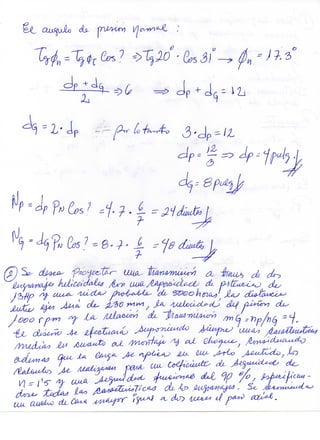 El angulo de presion Normal :
Tg ϕn = Tg ϕt Cos ? ⇒ Tg 20° · Cos 31° → ϕn = 17.3°
dp + dG / 2 ⇒ 6 ⇒ dp + dG = 12
dG = 2 · dp Por lo tanto 3 · dp = 12
dp = 12/3 ⇒ dp = 4 pulg
dG = 8 pulg
Np = dp PN Cos ? = 4 . 7 . 6/7 = 24 dientes
NG = dG PN Cos ? = 8 . 7 . 6/7 = 48 dientes
② Se desea Proyectar una transmision a traves de dos
engranajes helicoidales con una capacidad de potencia de
13 HP y una vida probable de 5000 horas, la distancia
entre ejes sera de 230 mm, la velocidad del piñon de
1000 rpm y la relacion de Transmision mG = np/nG = 4.
el diseño se efectuará suponiendo siempre unas caracteristicas
medias en cuanto al montaje y al choque, considerando
ademas que la carga se aplica en un solo sentido, los
calculos se realizaran para un coeficiente de seguridad de
n = 1'5 y una seguridad funcional del 90 %, especifican-
dose todas las caracteristicas de los engranajes. Se recomienda
un ancho de cara mayor igual a dos veces el paso axial.